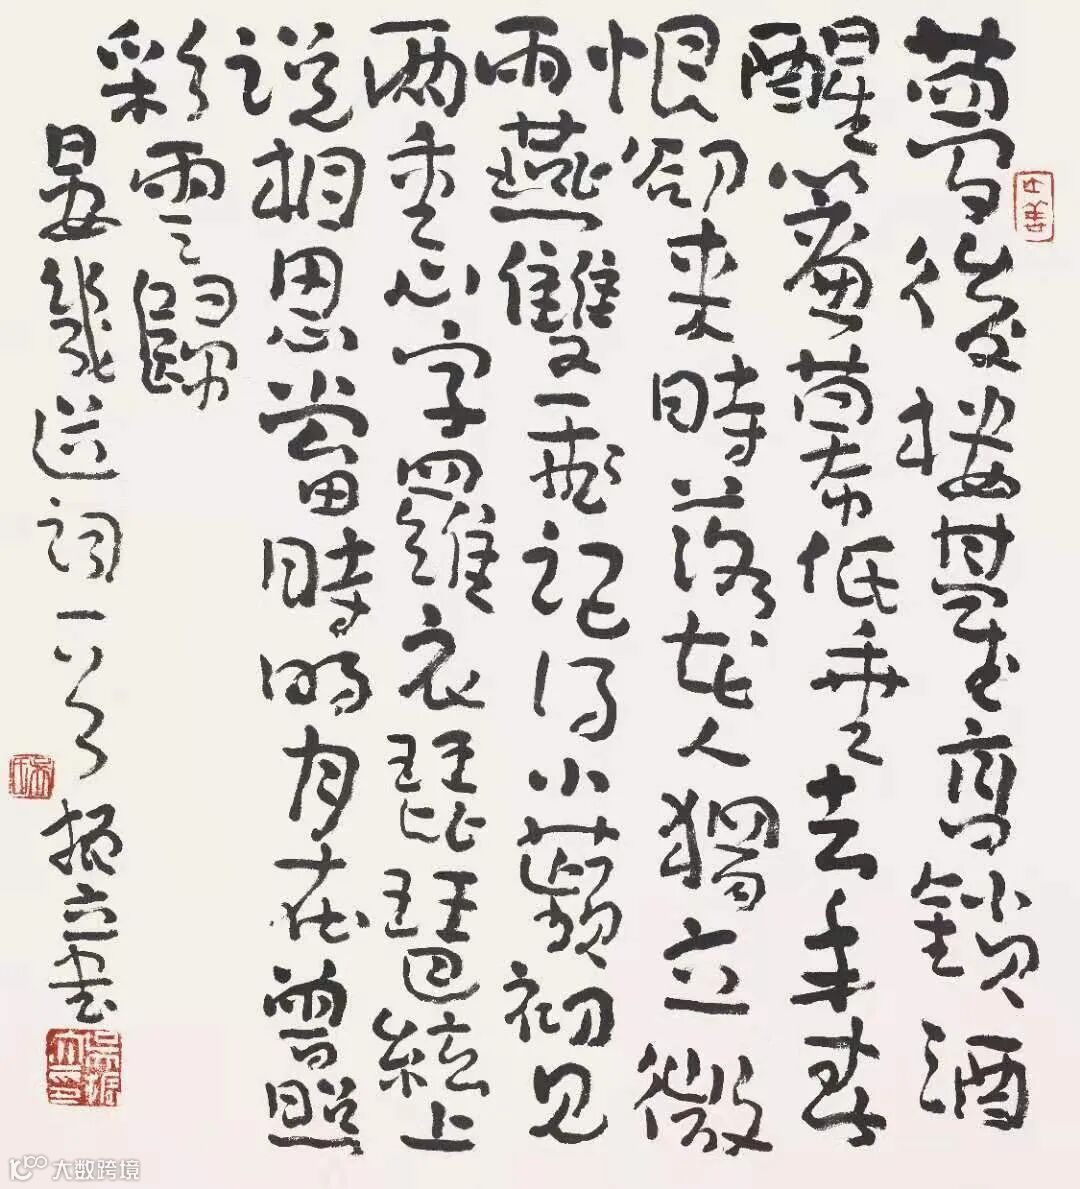 夢後樓臺高鎖酒
醒簾幕低垂去年春
恨卻來時落花人獨立微
雨燕雙飛記得小蘋初見
兩重心字羅衣琵琶絃上
說相思當時明月在曾照
彩雲歸
晏幾道詞一首 振立書
大数跨境